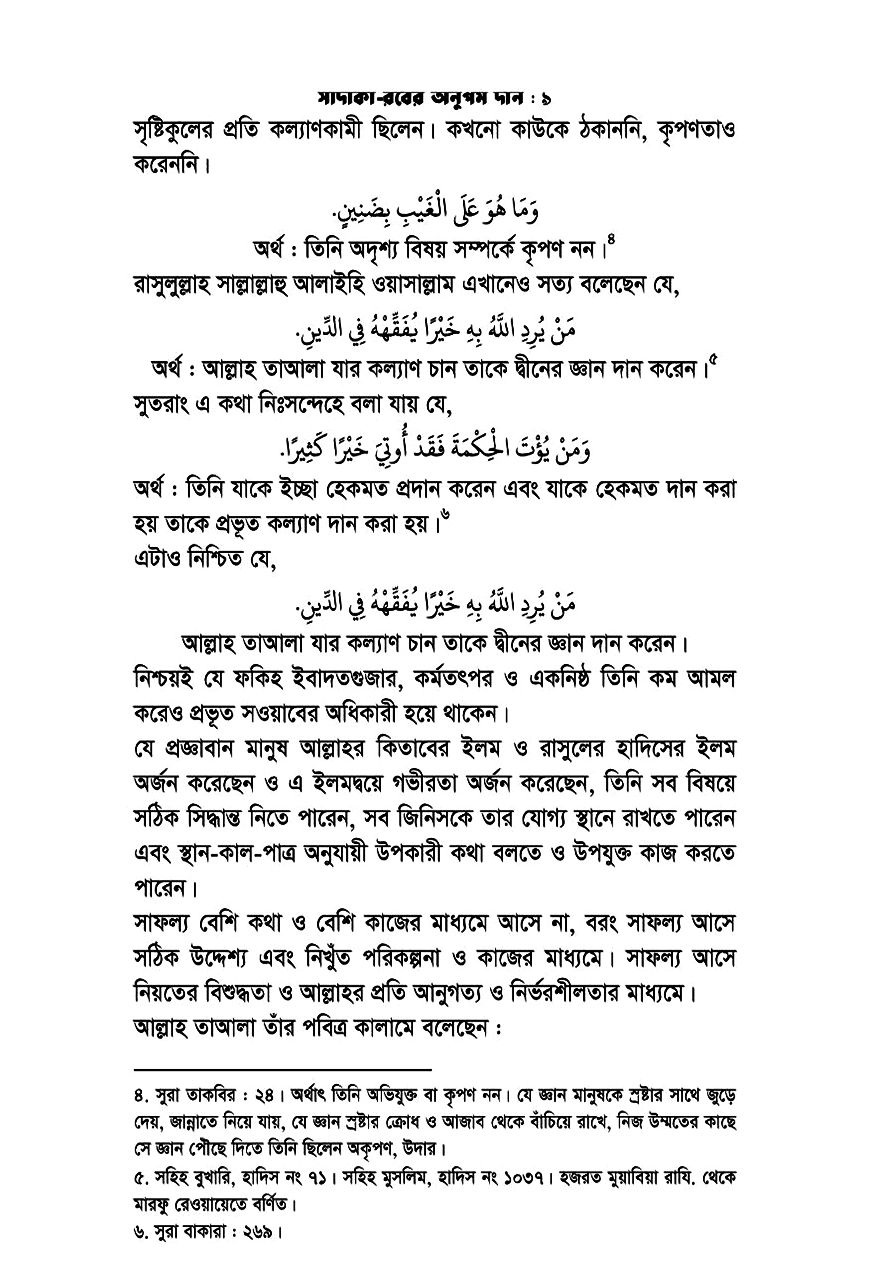 সাদাকা-রবের অনুপম দান : ৯
সৃষ্টিকুলের প্রতি কল্যাণকামী ছিলেন। কখনো কাউকে ঠকাননি, কৃপণতাও
করেননি।
وَمَا هُوَ عَلَى الْغَيْبِ بِضَنِينٍ.
অর্থ : তিনি অদৃশ্য বিষয় সম্পর্কে কৃপণ নন।৪
রাসুলুল্লাহ সাল্লাল্লাহু আলাইহি ওয়াসাল্লাম এখানেও সত্য বলেছেন যে,
مَنْ يُرِدِ اللَّهُ بِهِ خَيْرًا يُفَقِّهْهُ فِي الدِّينِ.
অর্থ : আল্লাহ তাআলা যার কল্যাণ চান তাকে দ্বীনের জ্ঞান দান করেন।৫
সুতরাং এ কথা নিঃসন্দেহে বলা যায় যে,
وَمَنْ يُؤْتَ الْحِكْمَةَ فَقَدْ أُوتِيَ خَيْرًا كَثِيرًا.
অর্থ : তিনি যাকে ইচ্ছা হেকমত প্রদান করেন এবং যাকে হেকমত দান করা
হয় তাকে প্রভূত কল্যাণ দান করা হয়।৬
এটাও নিশ্চিত যে,
مَنْ يُرِدِ اللَّهُ بِهِ خَيْرًا يُفَقِّهْهُ فِي الدِّينِ.
আল্লাহ তাআলা যার কল্যাণ চান তাকে দ্বীনের জ্ঞান দান করেন।
নিশ্চয়ই যে ফকিহ ইবাদতগুজার, কর্মতৎপর ও একনিষ্ঠ তিনি কম আমল
করেও প্রভূত সওয়াবের অধিকারী হয়ে থাকেন।
যে প্রজ্ঞাবান মানুষ আল্লাহর কিতাবের ইলম ও রাসুলের হাদিসের ইলম
অর্জন করেছেন ও এ ইলমদ্বয়ে গভীরতা অর্জন করেছেন, তিনি সব বিষয়ে
সঠিক সিদ্ধান্ত নিতে পারেন, সব জিনিসকে তার যোগ্য স্থানে রাখতে পারেন
এবং স্থান-কাল-পাত্র অনুযায়ী উপকারী কথা বলতে ও উপযুক্ত কাজ করতে
পারেন।
সাফল্য বেশি কথা ও বেশি কাজের মাধ্যমে আসে না, বরং সাফল্য আসে
সঠিক উদ্দেশ্য এবং নিখুঁত পরিকল্পনা ও কাজের মাধ্যমে। সাফল্য আসে
নিয়তের বিশুদ্ধতা ও আল্লাহর প্রতি আনুগত্য ও নির্ভরশীলতার মাধ্যমে।
আল্লাহ তাআলা তাঁর পবিত্র কালামে বলেছেন :
৪. সুরা তাকবির : ২৪। অর্থাৎ তিনি অভিযুক্ত বা কৃপণ নন। যে জ্ঞান মানুষকে স্রষ্টার সাথে জুড়ে
দেয়, জান্নাতে নিয়ে যায়, যে জ্ঞান স্রষ্টার ক্রোধ ও আজাব থেকে বাঁচিয়ে রাখে, নিজ উম্মতের কাছে
সে জ্ঞান পৌছে দিতে তিনি ছিলেন অকৃপণ, উদার।
৫. সহিহ বুখারি, হাদিস নং ৭১। সহিহ মুসলিম, হাদিস নং ১০৩৭। হজরত মুয়াবিয়া রাযি. থেকে
মারফু রেওয়ায়েতে বর্ণিত।
৬. সুরা বাকারা : ২৬৯।